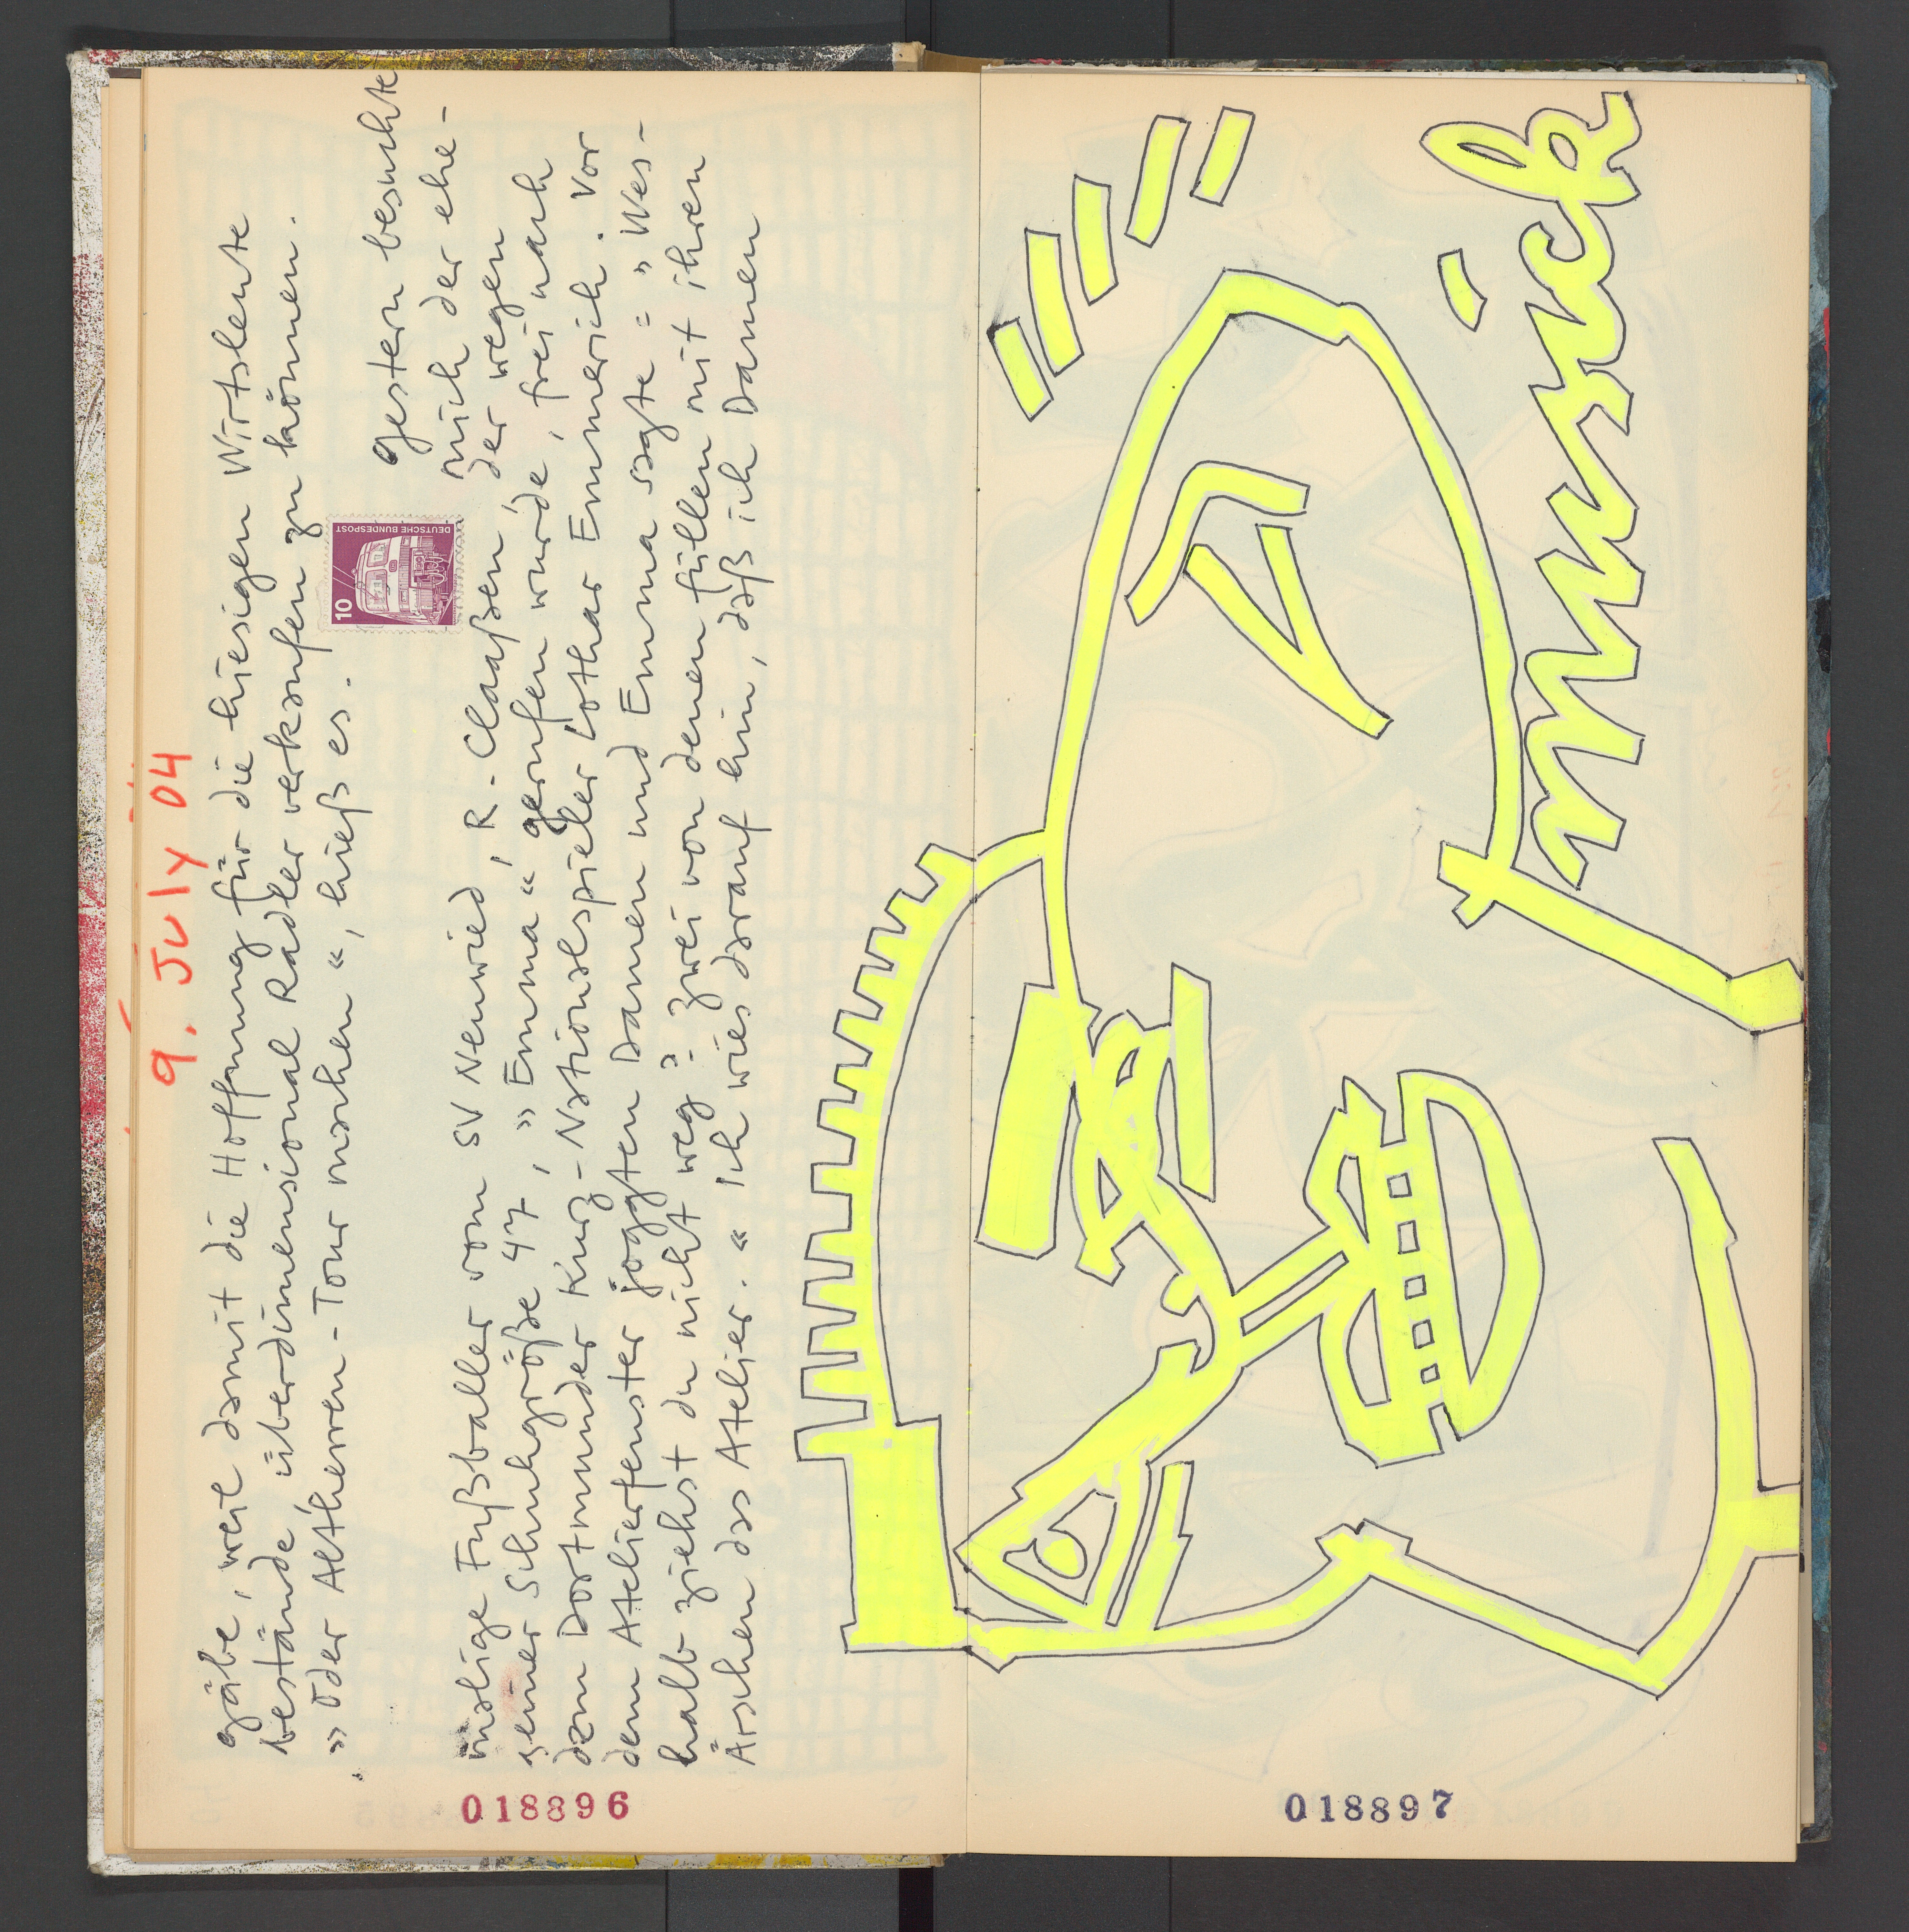 9. July 04
gäbe, weil damit die Hoffnung für die hiesigen Wirtsleute
bestände, überdimensional Radler verkaufen zu können.
» Oder Altherren-Tour machen «, hieß es.
10
DEUTSCHE BUNDESPOST
Gestern besuchte
mich der ehe-
malige Fußballer vom SV Neuwied, R. Claaßen, der wegen
seiner Schuhgröße 47, » Emma «, gerufen wurde, frei nach
dem Dortmunder Kurz-Nationalspieler Lothar Emmerich. Vor
dem Atelierfenster joggten Damen und Emma sagte: » Wes-
halb ziehst du nicht weg? Zwei von denen füllen mit ihren
Ärschen das Atelier. « Ich wies darauf hin, daß ich Damen
018896
mussich
018897